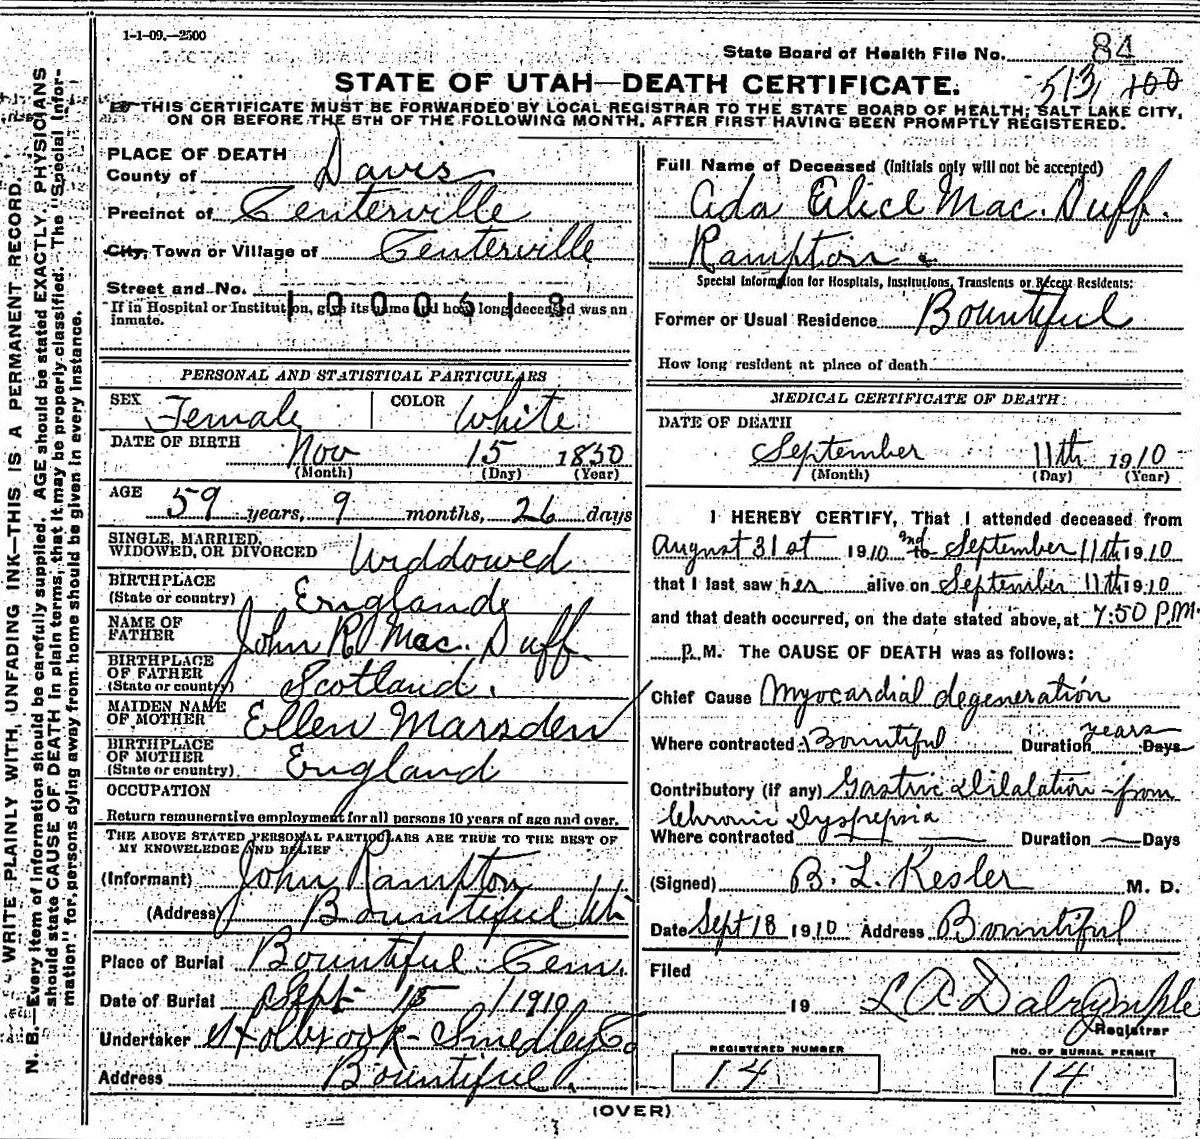 1-1-09.—2500
State Board of Health File No. 84
513, 100
STATE OF UTAH—DEATH CERTIFICATE.
THIS CERTIFICATE MUST BE FORWARDED BY LOCAL REGISTRAR TO THE STATE BOARD OF HEALTH; SALT LAKE CITY,
ON OR BEFORE THE 5TH OF THE FOLLOWING MONTH, AFTER FIRST HAVING BEEN PROMPTLY REGISTERED.
WRITE PLAINLY WITH, UNFADING INK—THIS IS A PERMANENT RECORD.
N. B.—Every item of information should be carefully supplied. AGE should be stated EXACTLY. PHYSICIANS
should state CAUSE OF DEATH in plain terms, that it may be properly classified. The "Special Infor-
mation" for persons dying away from home should be given in every instance.
PLACE OF DEATH
County of Davis
Precinct of Centerville
City, Town or Village of Centerville
Street and No.
1000618
If in Hospital or Institution, give its name and how long deceased was an
inmate.
PERSONAL AND STATISTICAL PARTICULARS
SEX Female COLOR White
DATE OF BIRTH Nov 15 1850
(Month) (Day) (Year)
AGE 59 years, 9 months, 26 days
SINGLE, MARRIED,
WIDOWED, OR DIVORCED Widdowed
BIRTHPLACE
(State or country) England
NAME OF
FATHER John R Mac. Duff.
BIRTHPLACE
OF FATHER
(State or country) Scotland.
MAIDEN NAME
OF MOTHER Ellen Marsden
BIRTHPLACE
OF MOTHER
(State or country) England
OCCUPATION
Return remunerative employment for all persons 10 years of age and over.
THE ABOVE STATED PERSONAL PARTICULARS ARE TRUE TO THE BEST OF
MY KNOWLEDGE AND BELIEF
(Informant) John Rampton
(Address) Bountiful Ut
Place of Burial Bountiful Cem.
Date of Burial Sept 15 1910
Undertaker Holbrook-Smedley Co
Address Bountiful
Full Name of Deceased (initials only will not be accepted)
Ada Elice Mac. Duff.
Rampton
Special Information for Hospitals, Institutions, Transients or Recent Residents:
Former or Usual Residence Bountiful
How long resident at place of death
MEDICAL CERTIFICATE OF DEATH:
DATE OF DEATH
September 11th 1910
(Month) (Day) (Year)
I HEREBY CERTIFY, That I attended deceased from
August 31st 1910 and to September 11th 1910
that I last saw her alive on September 11th 1910
and that death occurred, on the date stated above, at 7:50 P.M
P. M. The CAUSE OF DEATH was as follows:
Chief Cause Myocardial degeneration
Where contracted Bountiful Duration years Days
Contributory (if any) Gastric Dilalation from
Chronic Dyspepsia
Where contracted Duration Days
(Signed) B. L. Kesler M. D.
Date Sept 18 1910 Address Bountiful
Filed
19 L A Dalrymple
Registrar
REGISTERED NUMBER
14
NO. OF BURIAL PERMIT
14
(OVER)